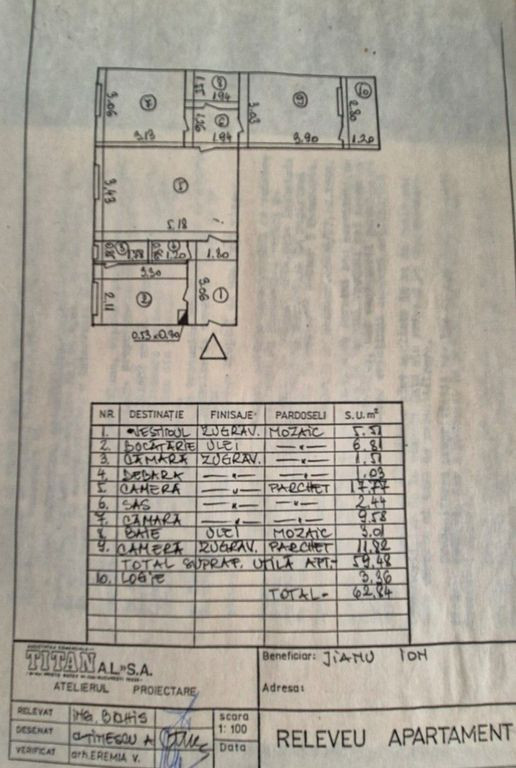 3.06
7
3.13
1.55
8
1.94
6
1.94
3.03
9
3.90
10
2.80
1.20
3.43
5
5.18
3
4
1.20
1.80
3.30
2.11
2
3.06
1
0.53x0.70
NR. DESTINAȚIE FINISAJE PARDOSELI S.U.m²
1. VESTIBUL ZUGRAV. MOZAIC 5.51
2. BUCĂTĂRIE ULEI —"— 6.81
3. CĂMARĂ ZUGRAV. —"— 1.51
4. DEBARA —"— —"— 1.03
5. CAMERĂ —"— PARCHET 17.77
6. SAS —"— —"— 2.44
7. CAMARĂ —"— —"— 9.58
8. BAIE ULEI MOZAIC 3.01
9. CAMERĂ ZUGRAV. PARCHET 11.82
TOTAL SUPRAF. UTILĂ APT- 59.48
10. LOGIE 3.36
TOTAL- 62.84
TITAN A.L» S.A.
ATELIERUL PROIECTARE
Beneficiar: JIANU ION
Adresa:
RELEVAT ING.
DESENAT
VERIFICAT arh. EREMIA V.
scara
1: 100
Data
RELEVEU APARTAMENT